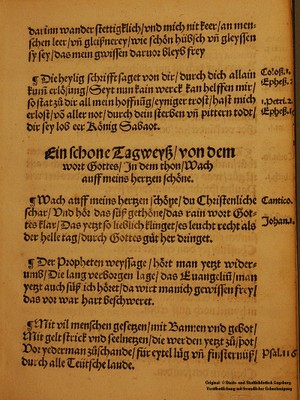 darinn wander stettigklich/ vnd mich nit keer/ an men-
schen leer/ vñ gleißnerey/ wie schön hübsch vñ gleyssen
sy sey/ das mein gwissen daruor bleyb frey
¶ Die heylig schrifft saget von dir/ durch dich allain
kum̃ erlösung/ Seyt nun kain werck kan helffen mir/
so stat zů dir all mein hoffnũg/ eyniger trost/ hast mich
erlost/ võ aller not/ durch dein sterben vñ pittern todt/
dir sey lob eer Künig Sabaot.
Coloß.1.
Ephes.
1.Petri.2
Epheß.1
Ein schone Tagweyß/ von dem
wort Gottes/ In dem thon/ Wach
auff meins hertzen schöne.
¶ Wach auff meins hertzen schöne/ du Christenliche
schar/ Vnd hör das süß gethöne/ das rain wort Got-
tes klar/ Das yetzt so lieblich klinget/ es leucht recht als
der helle tag/ durch Gottes güt her dringet.
Cantico.
Johan.1.
¶ Der Propheten weyssage/ hört man yetzt wider-
umb/ Die lang verborgen lage/ das Euangeliũ/ man
yetzt auch süß ich höret/ da wirt manich gewissen frey/
das vor war hart beschweret.
¶ Mit vil menschen gesetzen/ mit Bannen vnd gebot/
Mit gelt strick vnd seelnetzen/ die werden yetzt zů spot/
Vor yederman zů schande/ für eytel lüg vñ finsternüß/
durch alle Teütsche lande.
Psal.116
Original © Staats- und Stadtbibliothek Augsburg
Veröffentlichung mit freundlicher Genehmigung